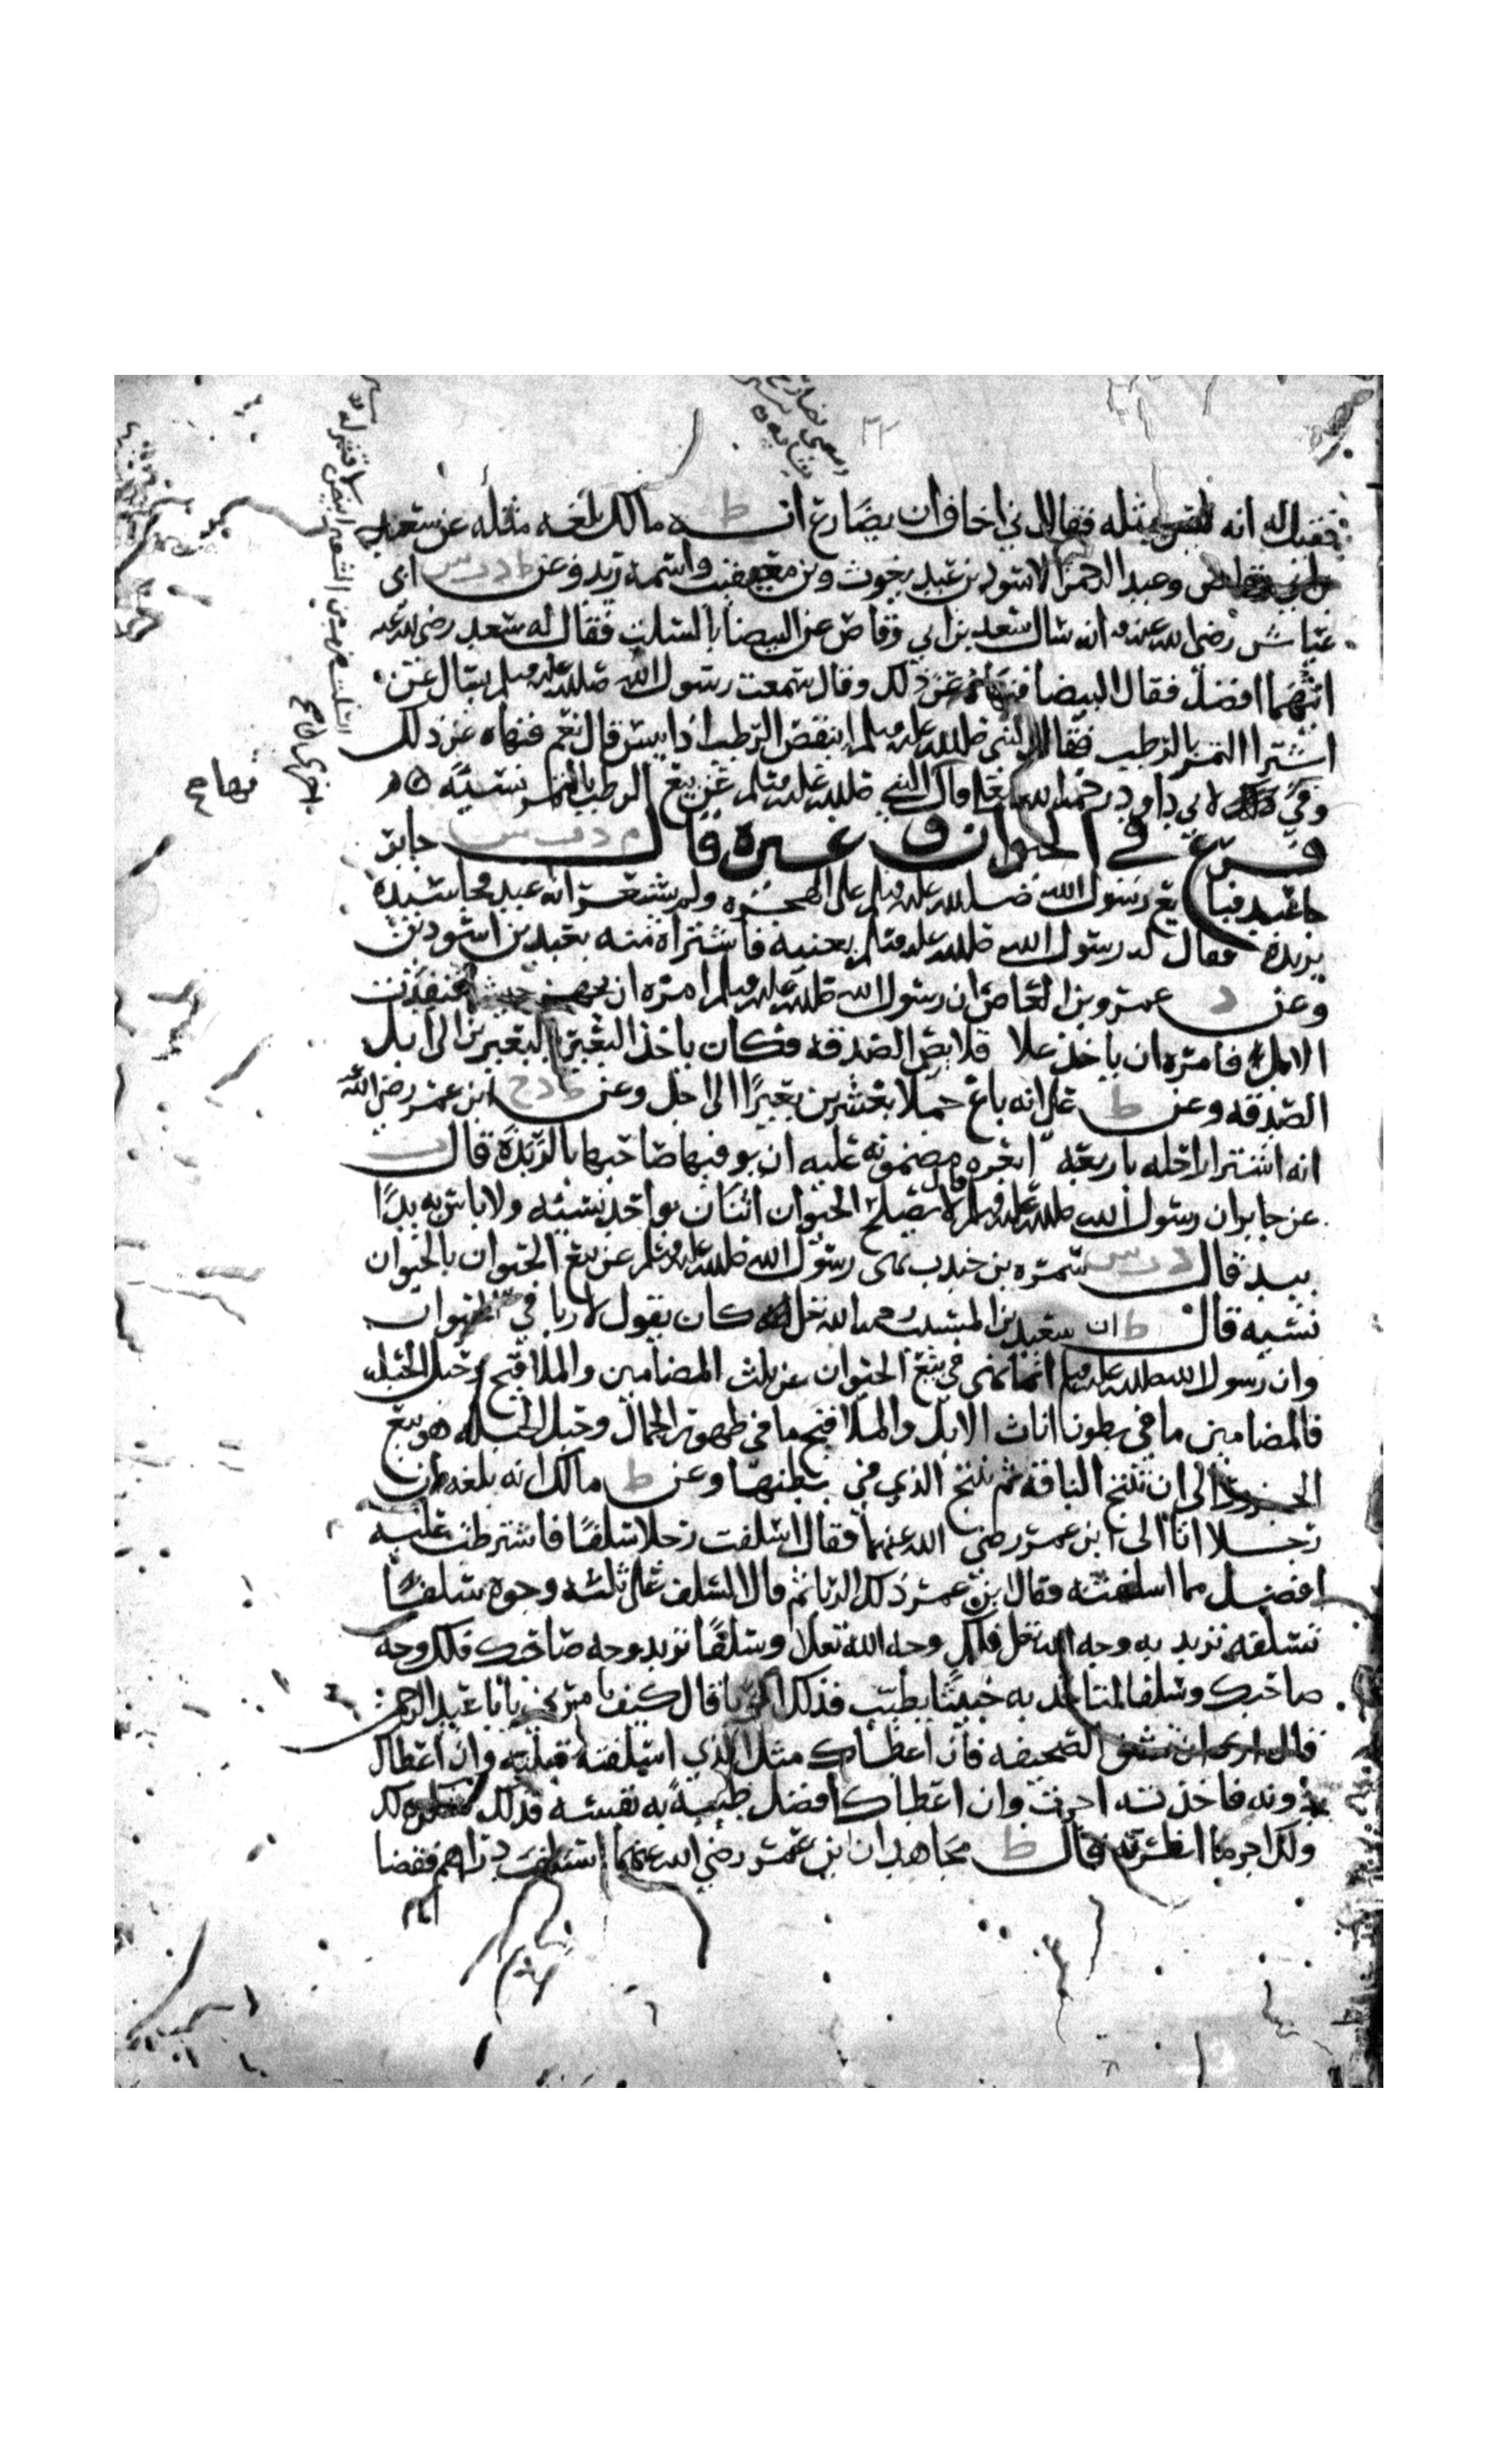 فقيل له انه ليس بمثله فقال اني اخاف ان يضارع انـه ط مالك بلغه مثله عن سعد
وعبد الرحمن الاسود بن عبد يغوث وبن معيقيب واسمه زيد وعن ط د ت س ابي
عياش رضي الله عنه انه سال سعد بن ابي وقاص عن البيضا بالسلت فقال له سعد رضي الله عنه
ايتهما افضل فقال البيضا فنهاه عن ذلك وقال سمعت رسول الله صلى الله عليه وسلم يسال عن
اشترا التمر بالرطب فقال النبي صلى الله عليه وسلم اينقص الرطب اذا يبس قال نعم فنهاه عن ذلك
وفي لابي داود رحمه الله نهى النبي صلى الله عليه وسلم عن بيع الرطب بالتمر نسية
فرع في الحيوان وغيره قال م د ت س جابر
جا عبد فبايع رسول الله صلى الله عليه وسلم على الهجره ولم يشعر انه عبد فجا سيده
يريده فقال له رسول الله صلى الله عليه وسلم بعنيه فاشتراه منه بعبدين اسودين
وعن د عمرو بن العاص ان رسول الله صلى الله عليه وسلم امره ان يجهز جيشا فنفدت
الابل فامره ان ياخذ علا قلايص الصدقه فكان ياخذ البعير بالبعيرين الى ابل
الصدقه وعن ط علي انه باع جملا بعشرين بعيرا الى اجل وعن ط د خ ابن عمر رضي الله
انه اشترا راحله باربعه ابعره مضمونه عليه ان يوفيها صاحبها بالربذة قال ت
عن جابر ان رسول الله صلى الله عليه وسلم قال لا يصلح الحيوان اثنان بواحد نسيئه ولا باس به يدا
بيد قال د ت س سمره بن جندب نهى رسول الله صلى الله عليه وسلم عن بيع الحيوان بالحيوان
نسيه قال ط ان سعيد بن المسيب رحمه الله كان يقول لا ربا في الحيوان
وان رسول الله صلى الله عليه وسلم انما نهى في بيع الحيوان عن ثلث المضامين والملاقيح وحبل الحبله
فالمضامين ما في بطون اناث الابل والملاقيح ما في ظهور الجمال وحبل الحبله هو بيع
الجزور الى ان تنتج الناقه ثم تنتج الذي في بطنها وعن ط مالك انه بلغه ان
رجلا اتا الى ابن عمر رضي الله عنهما فقال اسلفت رجلا سلفا فاشترطت عليه
افضل مما اسلفته فقال ابن عمر ذلك الربا ثم قال السلف على ثلثه وجوه سلف
تسلفه تريد به وجه الله فلك وجه الله تعلا وسلفا تريد وجه صاحبك فلك وجه
صاحبك وسلفا لتاخذ به خبيثا بطيب فذلك الربا قال كيف تامرني يابا عبد الرحمن
قال ارى ان تشق الصحيفه فان اعطاك مثل الذي اسلفته قبلته وان اعطاك
دونه فاخذته اجرت وان اعطاك افضل طيبة به نفسه فذلك شكره لك
ولك اجر ما انظرته قال ط مجاهد ان ابن عمر رضي الله عنهما استسلف دراهم فقضا